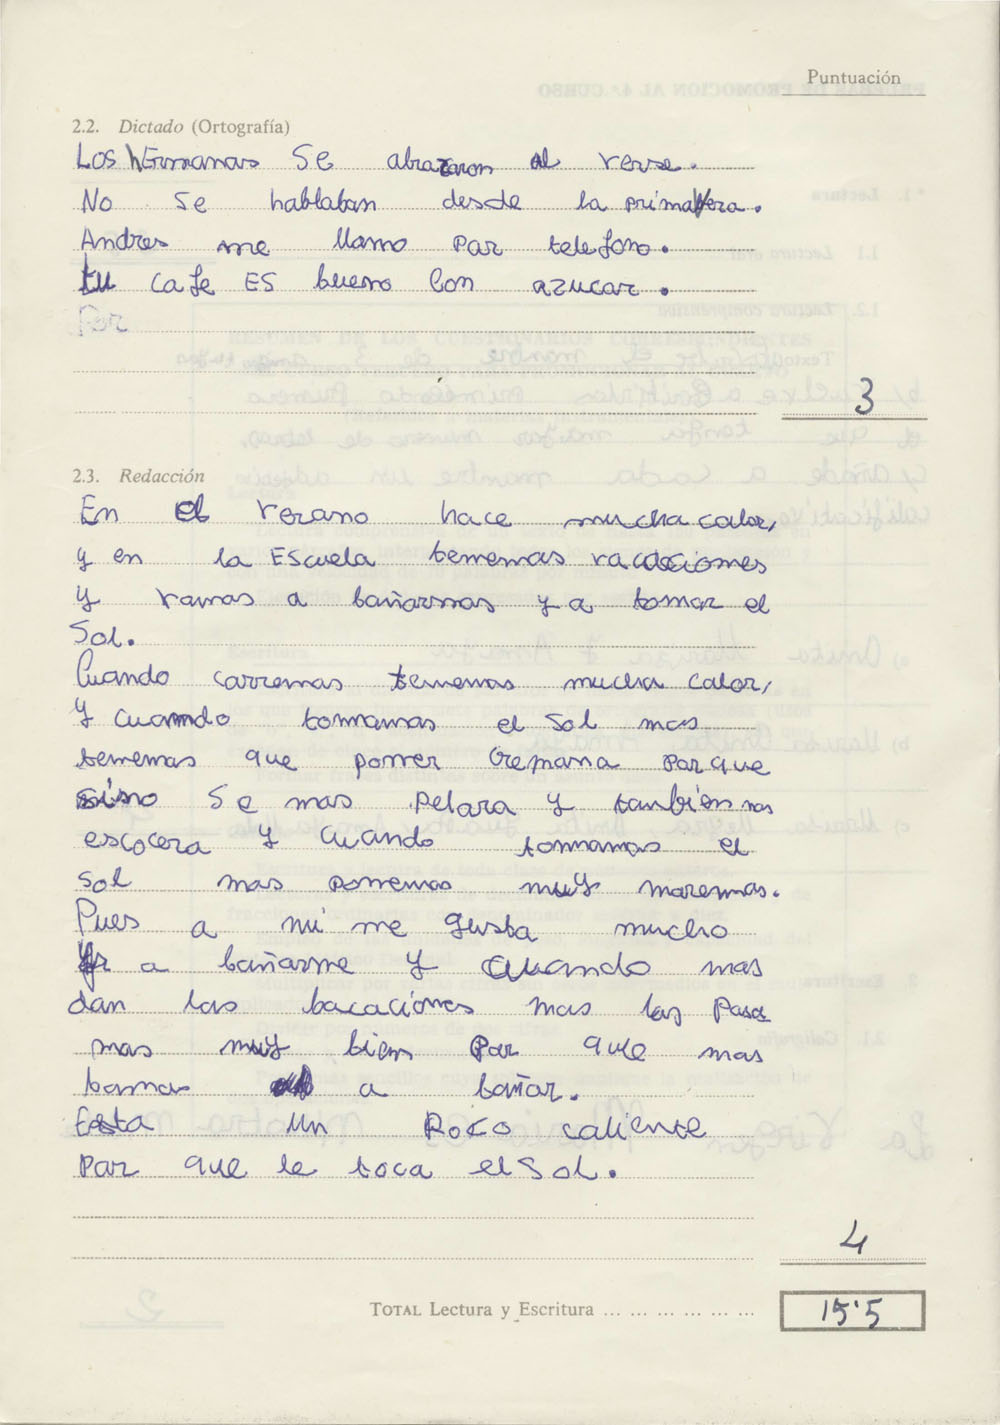 Puntuación
2.2. Dictado (Ortografía)
Los hermanos se abrazaron al verse.
No se hablaban desde la primavera.
Andres me llamo por telefono.
tu cafe ES bueno con azucar.
Por
3
2.3. Redacción
En el verano hace mucha calor,
y en la Escuela tenemos vacaciones
y vamos a bañarnos y a tomar el
Sol.
Cuando corremos tenemos mucha calor,
y cuando tonmamos el sol nos
tenemos que ponner cremana porque
sino se nos pelara y tanbien nos
escocera y cuando tonmamos el
sol nos ponnemos muy morenos.
Pues a mi me gusta mucho
ir a bañarme y cuando nos
dan las bacaciónes nos las pasa
mos muy bien por que nos
bamos a bañar.
Esta un poco caliente
por que le toca el sol.
4
TOTAL Lectura y Escritura ... ... ... ... ... ...
15'5